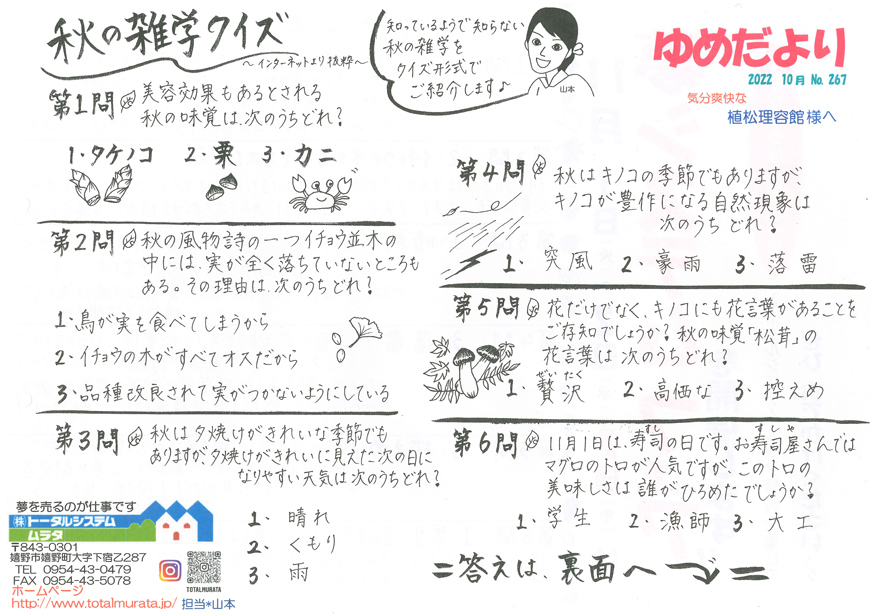 秋の雑学クイズ
～インターネットより抜粋～
知っているようで知らない
秋の雑学を
クイズ形式で
ご紹介します♪
山本
ゆめだより
2022 10月 No. 267
気分爽快な
植松理容館様へ
第1問 美容効果もあるとされる
秋の味覚は、次のうちどれ？
1・タケノコ 2・栗 3・カニ
第2問 秋の風物詩の一つイチョウ並木の
中には、実が全く落ちていないところも
ある。その理由は、次のうちどれ？
1・鳥が実を食べてしまうから
2・イチョウの木がすべてオスだから
3・品種改良されて実がつかないようにしている
第3問 秋は夕焼けがきれいな季節でも
ありますが、夕焼けがきれいに見えた次の日に
なりやすい天気は次のうちどれ？
1・晴れ
2・くもり
3・雨
第4問 秋はキノコの季節でもありますが、
キノコが豊作になる自然現象は
次のうちどれ？
1・突風 2・豪雨 3・落雷
第5問 花だけでなく、キノコにも花言葉があることを
ご存知でしょうか？秋の味覚「松茸」の
花言葉は次のうちどれ？
ぜいたく
1・贅沢 2・高価な 3・控えめ
すし すしや
第6問 11月1日は、寿司の日です。お寿司屋さんでは
マグロのトロが人気ですが、このトロの
美味しさは誰がひろめたでしょうか？
1・学生 2・漁師 3・大工
＝答えは、裏面へ＝
夢を売るのが仕事です
㈱トータルシステム
ムラタ
〒843-0301
嬉野市嬉野町大字下宿乙287
TEL 0954-43-0479
FAX 0954-43-5078
ホームページ
http://www.totalmurata.jp/ 担当*山本
TOTALMURATA